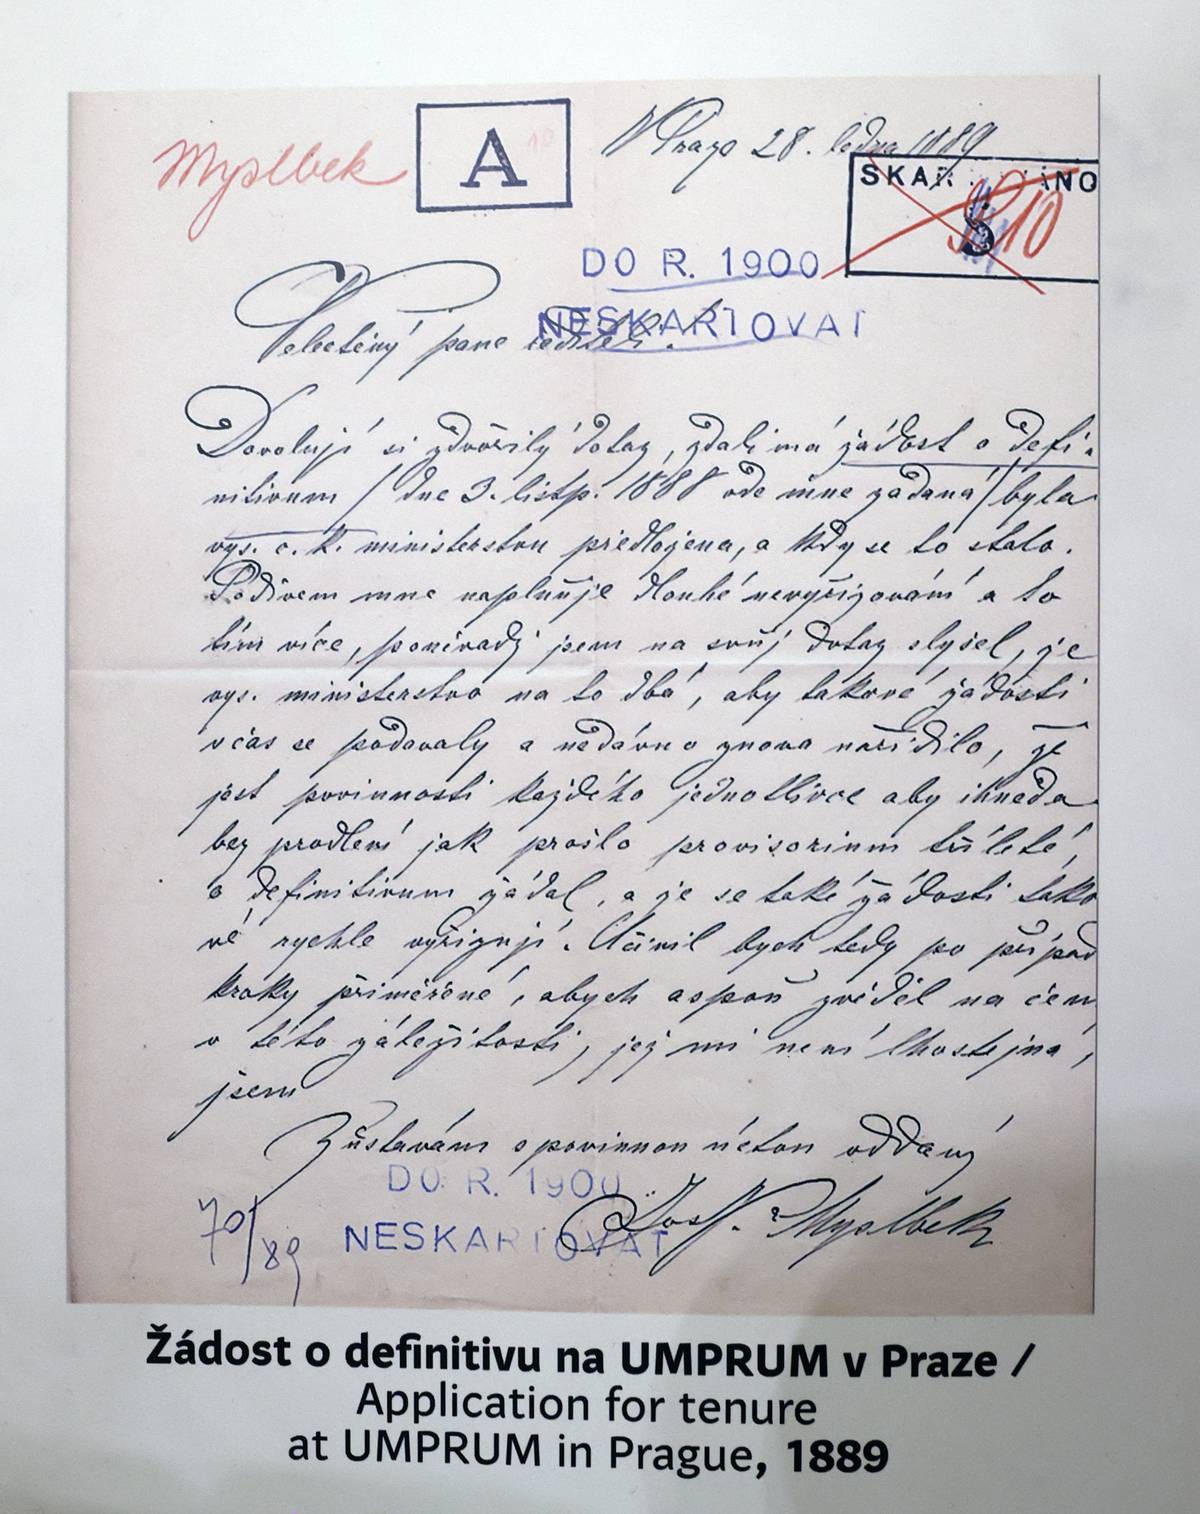 Myslbek
A
10
V Praze 28. ledna 1889
SKAR NO
S
10
DO R. 1900
NESKARTOVAT
Velectěný pane řediteli!
Dovoluji si zdvořilý dotaz, zdali má žádost o defi-
nitivum / dne 3. listp. 1888 ode mne zadaná / byla
vys. c. k. ministerstvu předložena, a kdy se to stalo.
Podivem mne naplňuje dlouhé nevyřizování a to
tím více, poněvadž jsem na svůj dotaz slyšel, že
vys. ministerstvo na to dbá, aby takové žádosti
včas se podavaly a nedávno znova nařídilo, že
jest povinností každého jednotlivce aby ihned a
bez prodlení jak prošlo provisorium tříleté,
o definitivum žádal, a že se také žádosti tako
vé rychle vyřizují. Učinil bych tedy po případ
kroky přiměřené, abych aspoň zvěděl na čem
v této záležitosti, jež mi není lhostejná,
jsem
Zůstávám s povinnou úctou oddaný
Jos. V. Myslbek
DO R. 1900
NESKARTOVAT
70/89
Žádost o definitivu na UMPRUM v Praze /
Application for tenure
at UMPRUM in Prague, 1889